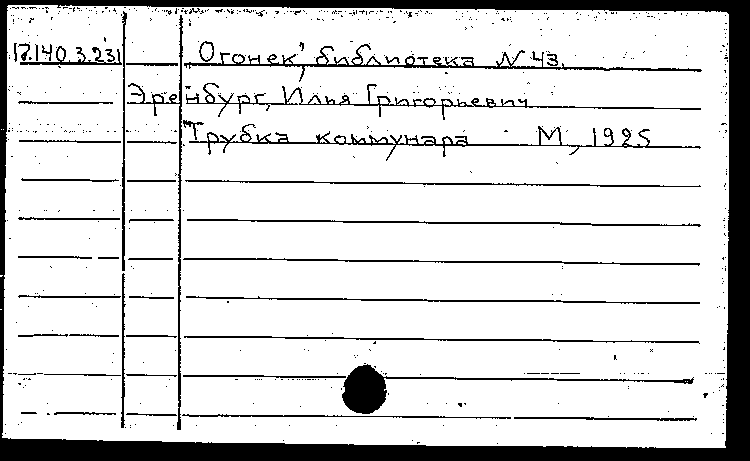 17.140.3.231 Огонек, библиотека N 43.
Эренбург, Илья Григорьевич
Трубка коммунара М, 1925